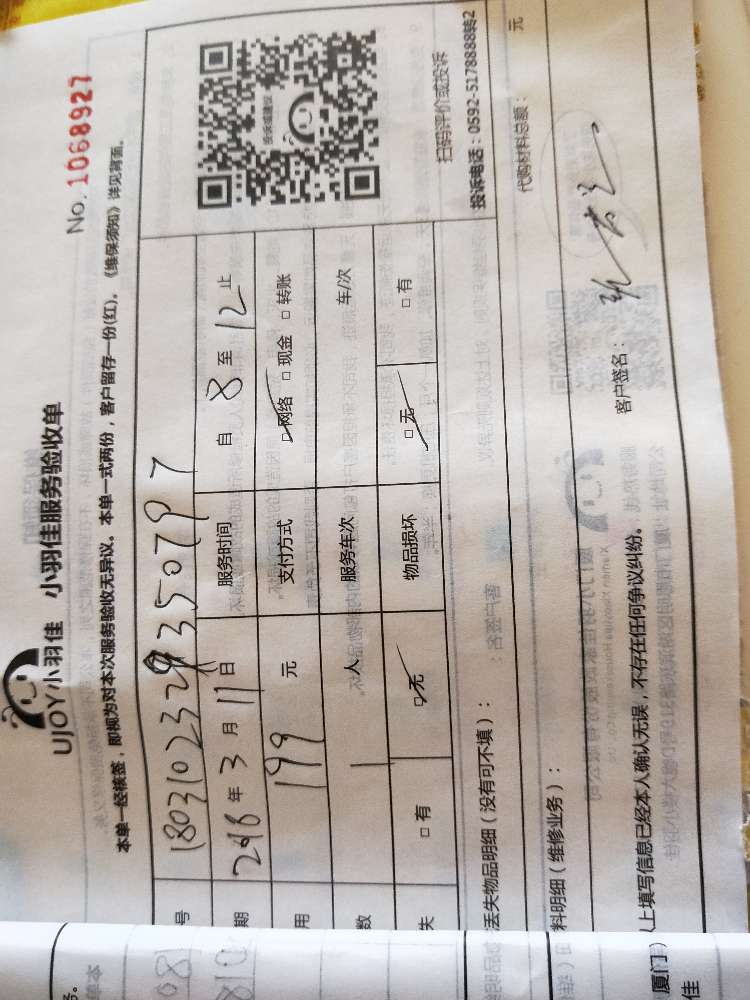 UJOY小羽佳 小羽佳服务验收单
No. 1068927
本单一经核签，即视为对本次服务验收无异议。本单一式两份，客户留存一份(红)。《维保须知》详见背面。
号
服务时间 自 8 至 12 止
期 年 3 月 11 日
用 199 元 支付方式 □网络 □现金 □转账
数 1 人 服务车次 车/次
失 □有 □无 物品损坏 □无 □有
扫码评价或投诉
投诉电话：0592-5178888转2
丢失物品明细（没有可不填）：
料明细（维修业务）： 代购材料总额： 元
以上填写信息已经本人确认无误，不存在任何争议纠纷。 客户签名：
厦门
佳